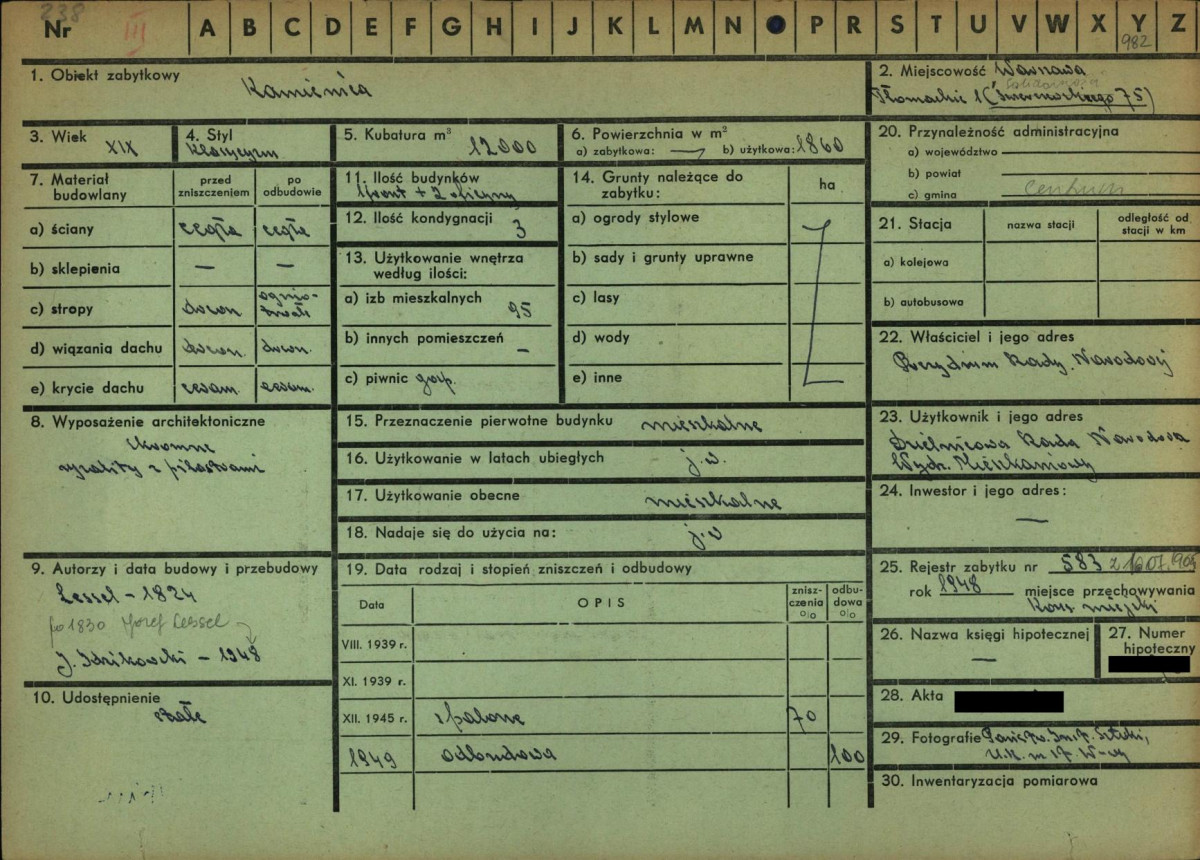 238
Nr III A B C D E F G H I J K L M N P R S T U V W X Y Z
982
1. Obiekt zabytkowy Kamienica
2. Miejscowość Warszawa
Solidarności
Tłomackie 1 (Świerczewskiego 75)
3. Wiek XIX
4. Styl klasycyzm
5. Kubatura m³ 12000
6. Powierzchnia w m²
a) zabytkowa: — b) użytkowa: 1860
7. Materiał budowlany
przed zniszczeniem
po odbudowie
a) ściany cegła cegła
b) sklepienia — —
c) stropy drewn ognio-
trwałe
d) wiązania dachu drewn. drewn.
e) krycie dachu ceram. ceram.
8. Wyposażenie architektoniczne
skromne
ryzality z pilastrami
9. Autorzy i data budowy i przebudowy
Lessel – 1824
po 1830 Józef Lessel
J. Idzikowski – 1948
10. Udostępnienie
stałe
11. Ilość budynków
front + 2 oficyny
12. Ilość kondygnacji 3
13. Użytkowanie wnętrza
według ilości:
a) izb mieszkalnych 95
b) innych pomieszczeń –
c) piwnic gosp.
14. Grunty należące do
zabytku:
ha
a) ogrody stylowe
b) sady i grunty uprawne
c) lasy
d) wody
e) inne
15. Przeznaczenie pierwotne budynku mieszkalne
16. Użytkowanie w latach ubiegłych j.w.
17. Użytkowanie obecne mieszkalne
18. Nadaje się do użycia na: j.w
19. Data rodzaj i stopień zniszczeń i odbudowy
Data OPIS znisz-
czenia
o/o
odbu-
dowa
o/o
VIII. 1939 r.
XI. 1939 r.
XII. 1945 r. spalone 70
1949 odbudowa 100
20. Przynależność administracyjna
a) województwo
b) powiat
c) gmina Centrum
21. Stacja
nazwa stacji
odległość od
stacji w km
a) kolejowa
b) autobusowa
22. Właściciel i jego adres
Prezydium Rady Narodowej
23. Użytkownik i jego adres
Dzielnicowa Rada Narodowa
Wydz. Mieszkaniowy
24. Inwestor i jego adres:
—
25. Rejestr zabytku nr 583 z 1.07.1965
rok 1948 miejsce przechowywania
Kons. miejski
26. Nazwa księgi hipotecznej
—
27. Numer
hipoteczny
28. Akta
29. Fotografie Państw. Inst. Sztuki,
U.K. m st W-wy
30. Inwentaryzacja pomiarowa